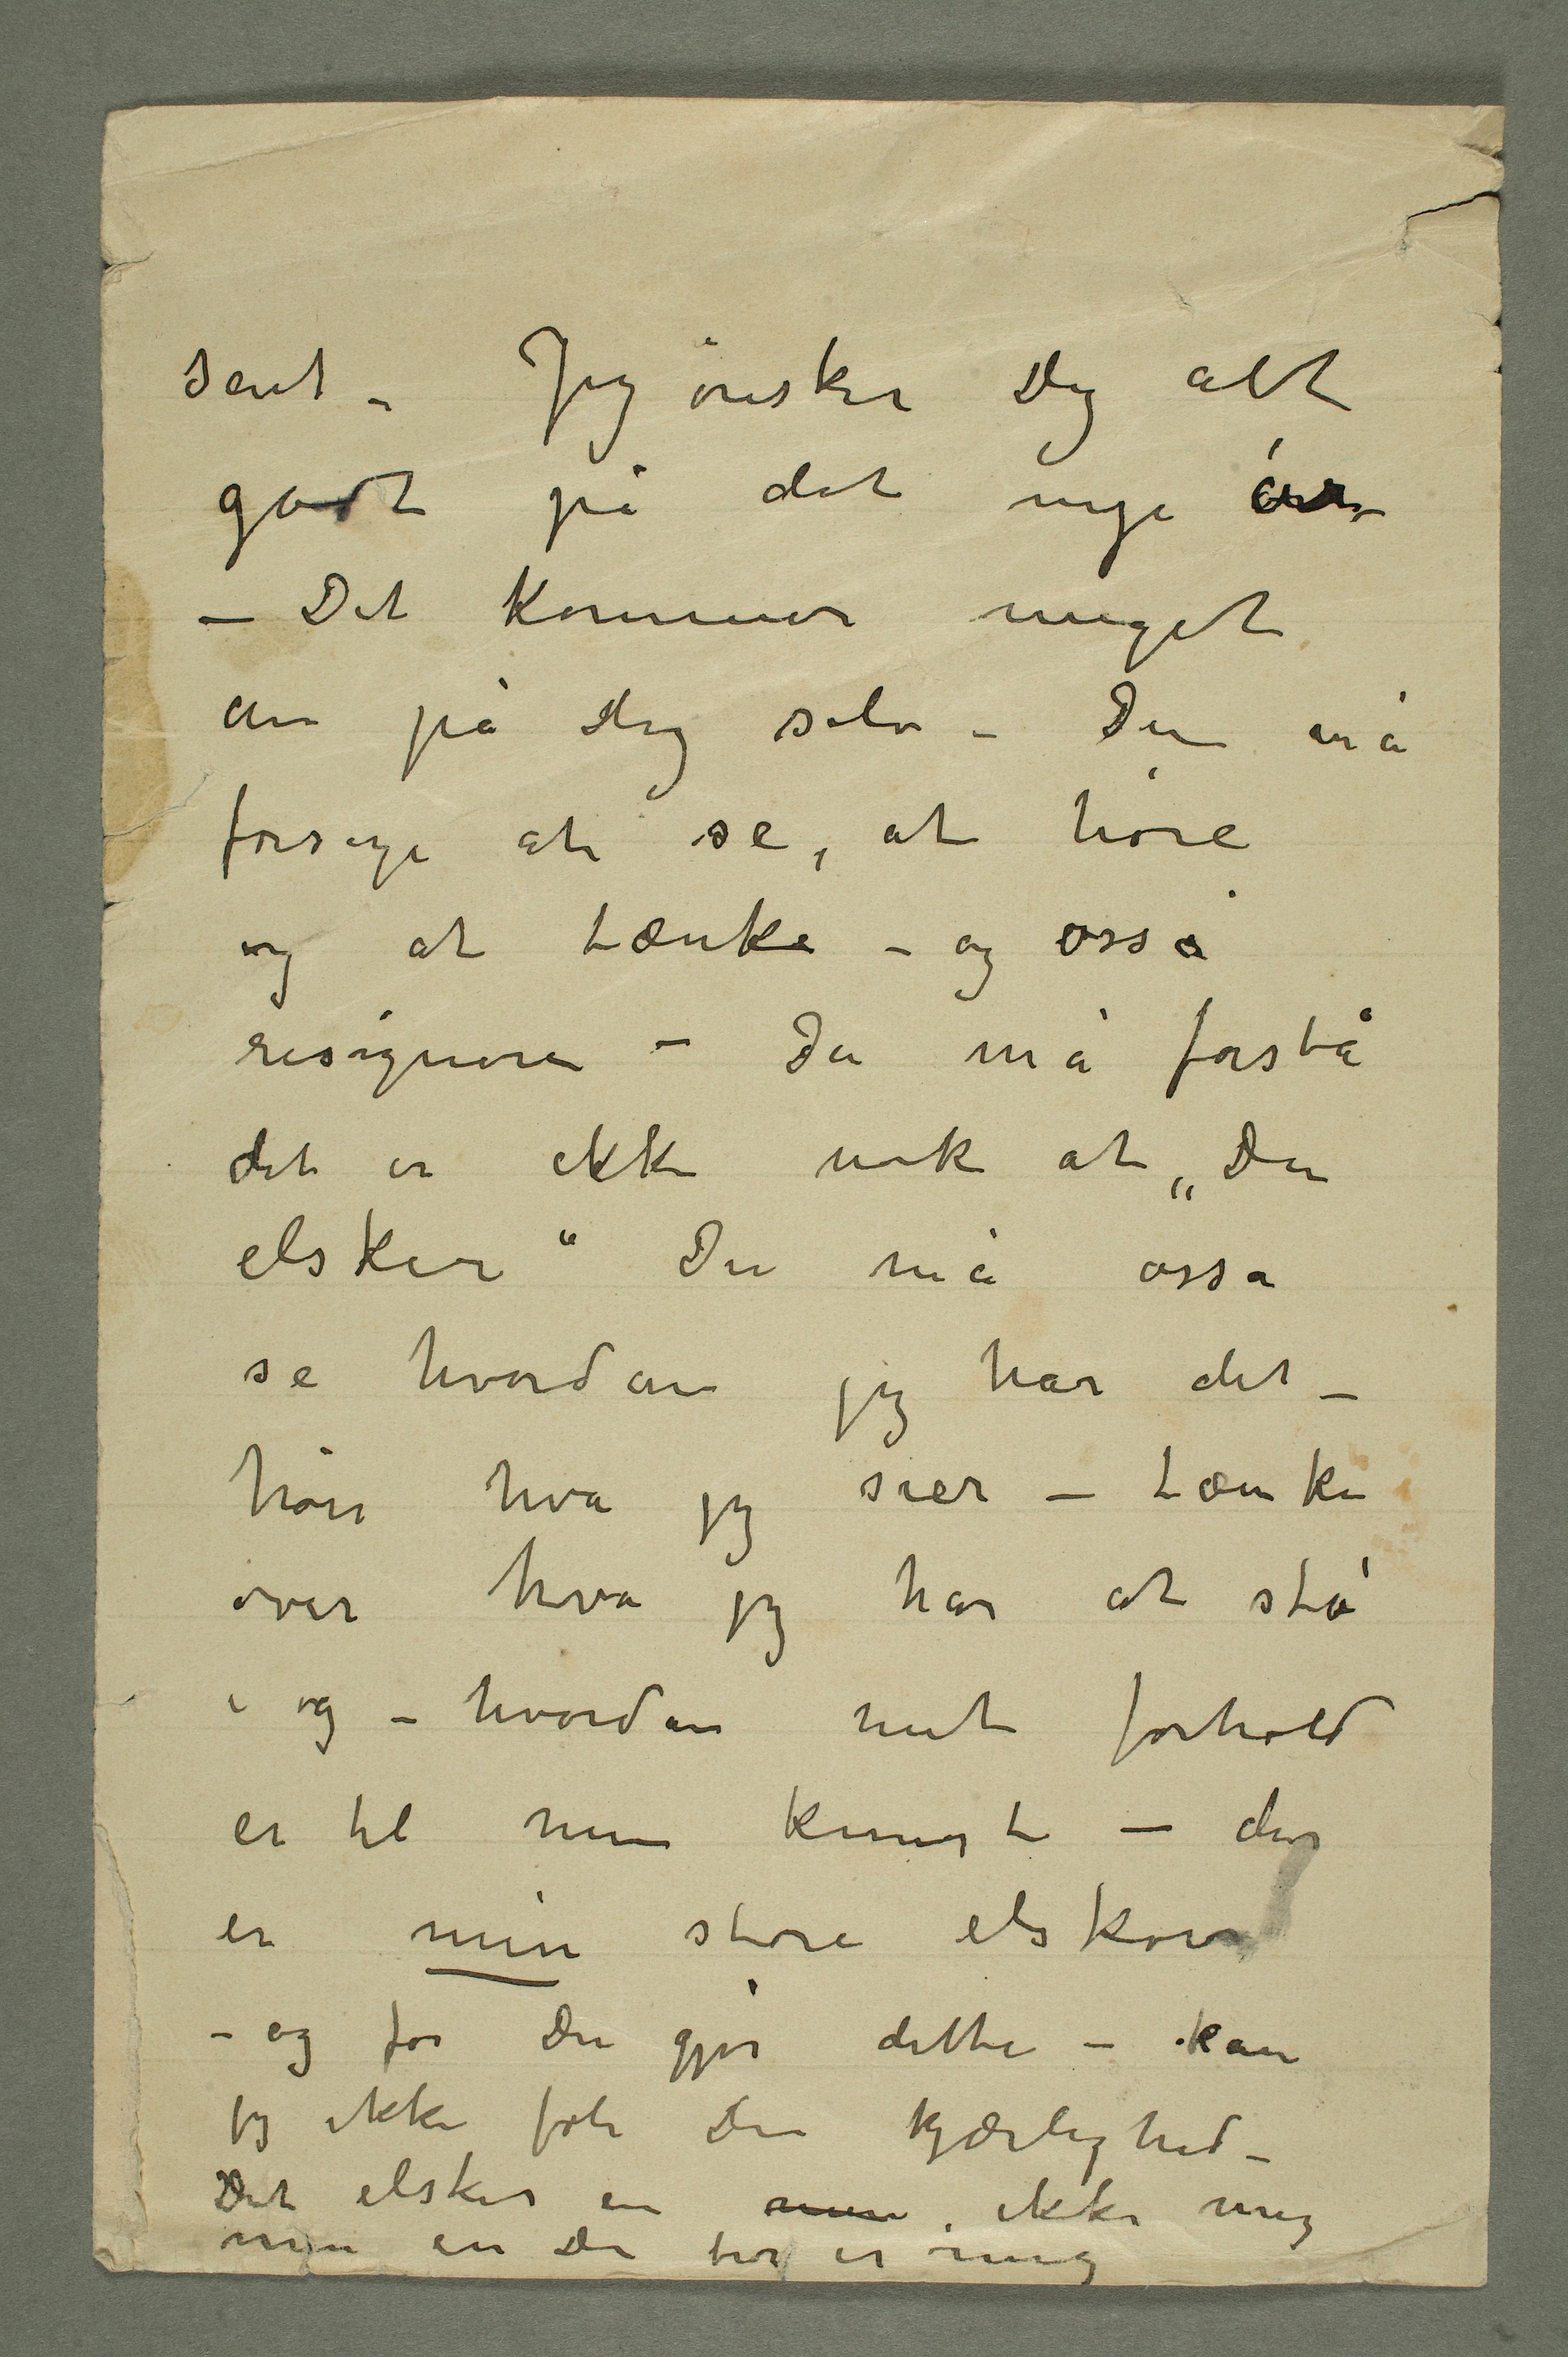 sent – Jeg ønsker Dig alt
godt på det nye år –
– Det kommer meget
an på dig selv – Du må
forsøge at se, at høre
og at tænke – og osså
resignere – Du må forstå
det er ikke nok at „Du
elsker“ Du må ossa
se hvordan jeg har det –
høre hva jeg sier – tænke
over hva jeg har at stå
i og – hvordan mit forhold
er til min kunst – der
er min store elskov
– og før Du gjør dette – kan
jeg ikke føle Din kjærlighed –
Det elsker en men ikke mig
men en Du tror er mig